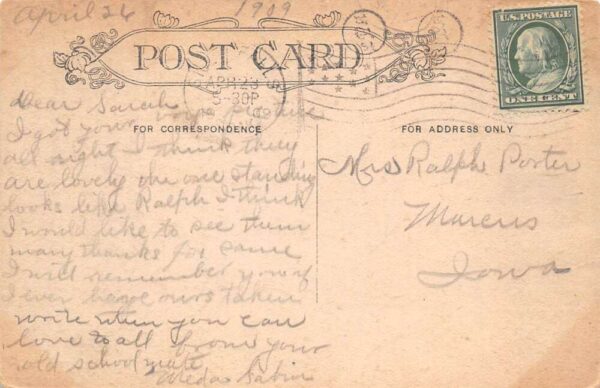 April 26 1909
U.S. POSTAGE
POST CARD
ONE CENT
APR 26
5-30P
FOR CORRESPONDENCE
FOR ADDRESS ONLY
Dear Sarah
I got your picture
all right I think they
are lovely the one standing
looks like Ralph I think
I would like to see them
many thanks for same
I will remember you if
I ever have ours taken
write when you can
love to all from your
old schoolmate
Sabin
Mrs Ralph Porter
Marcus
Iowa